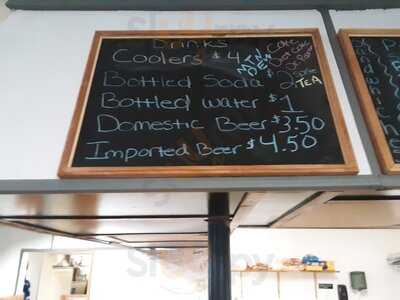 Drinks
Coolers $4
MTN DEW
Coke
Diet Coke
Dr. Pepper
Bottled Soda $2
TEA
Bottled Water $1
Domestic Beer $3.50
Imported Beer $4.50